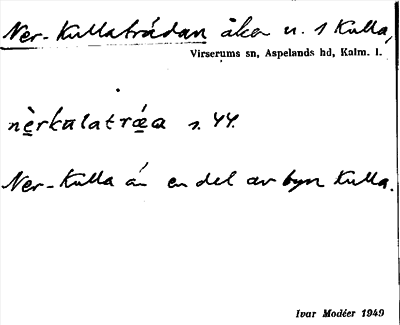 Ner-Kullatrådan åker n. 1 Kulla,
Virserums sn, Aspelands hd, Kalm. l.
nèrkulatráa s. 44.
Ner-Kulla är en del av byn Kulla.
Ivar Modéer 1949